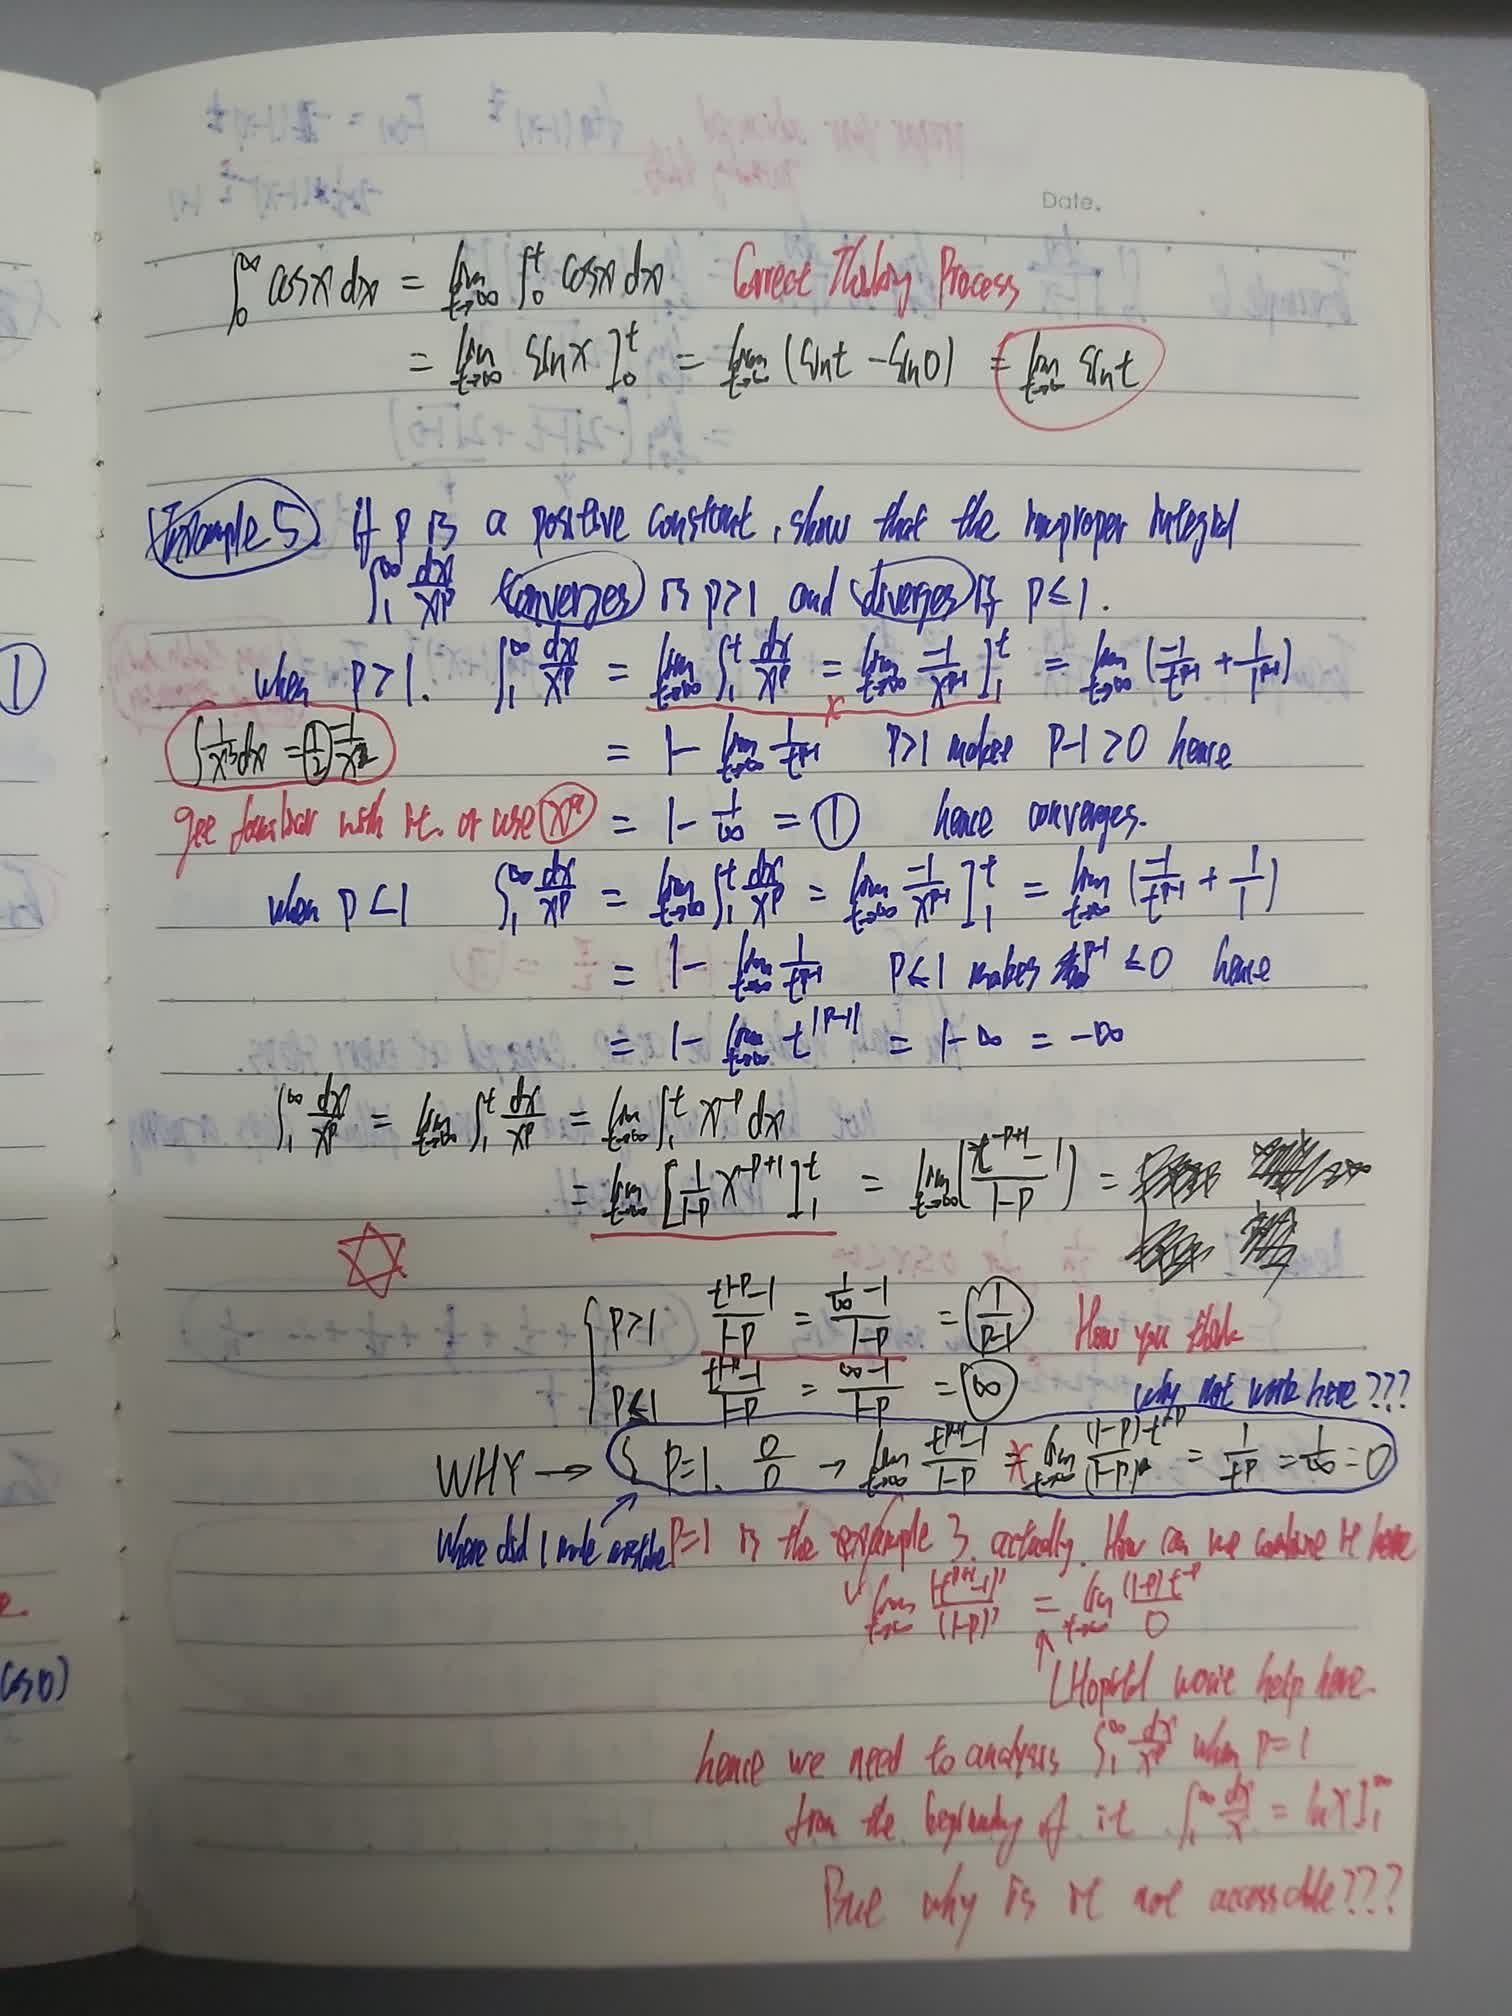 Date.
∫₀^∞ cosx dx = lim_{t→∞} ∫₀^t cosx dx Correct Thinking Process
= lim_{t→∞} sinx ]₀^t = lim_{t→∞} (sint - sin0) = lim_{t→∞} sint
Example 5. If p is a positive constant, show that the improper integral
∫₁^∞ dx/x^p converges is p>1 and diverges if p≤1.
when p>1. ∫₁^∞ dx/x^p = lim_{t→∞} ∫₁^t dx/x^p = lim_{t→∞} -1/x^{p-1} ]₁^t = lim_{t→∞} (-1/t^{p-1} + 1/1^{p-1})
x
∫ 1/x³ dx = (1/2) -1/x² = 1 - lim_{t→∞} 1/t^{p-1} p>1 makes p-1>0 hence
get familiar with it. or use x^a = 1 - 1/∞ = 1 hence converges.
when p<1 ∫₁^∞ dx/x^p = lim_{t→∞} ∫₁^t dx/x^p = lim_{t→∞} -1/x^{p-1} ]₁^t = lim_{t→∞} (-1/t^{p-1} + 1/1)
= 1 - lim_{t→∞} 1/t^{p-1} p≤1 makes p-1 ≤0 hence
= 1 - lim_{t→∞} t^{|p-1|} = 1-∞ = -∞
∫₁^∞ dx/x^p = lim_{t→∞} ∫₁^t dx/x^p = lim_{t→∞} ∫₁^t x^{-p} dx
= lim_{t→∞} [1/(1-p) x^{-p+1}]₁^t = lim_{t→∞} ((t^{-p+1} - 1)/(1-p)) =
{ p>1 (t^{1-p}-1)/(1-p) = (1/∞ - 1)/(1-p) = 1/(p-1) How you think
p≤1 (t^{1-p}-1)/(1-p) = (∞-1)/(1-p) = ∞ why not work here???
WHY → { p=1. 0/0 → lim_{t→∞} (t^{p+1}-1)/(1-p) = lim_{t→∞} (1-p)t^{-p}/(1-p) = 1/t^p = 1/∞ = 0
where did I made mistake p=1 is the example 3. actually. How can we combine it here
✓ lim_{t→∞} (t^{p+1}-1)'/(1-p)' = lim_{t→∞} (1-p)t^{-p}/0
LHopital won't help here.
hence we need to analysis ∫₁^∞ dx/x^p when p=1
from the beginning of it ∫₁^∞ dx/x = lnx]₁^∞
But why is it not accessible???
①
cos0)